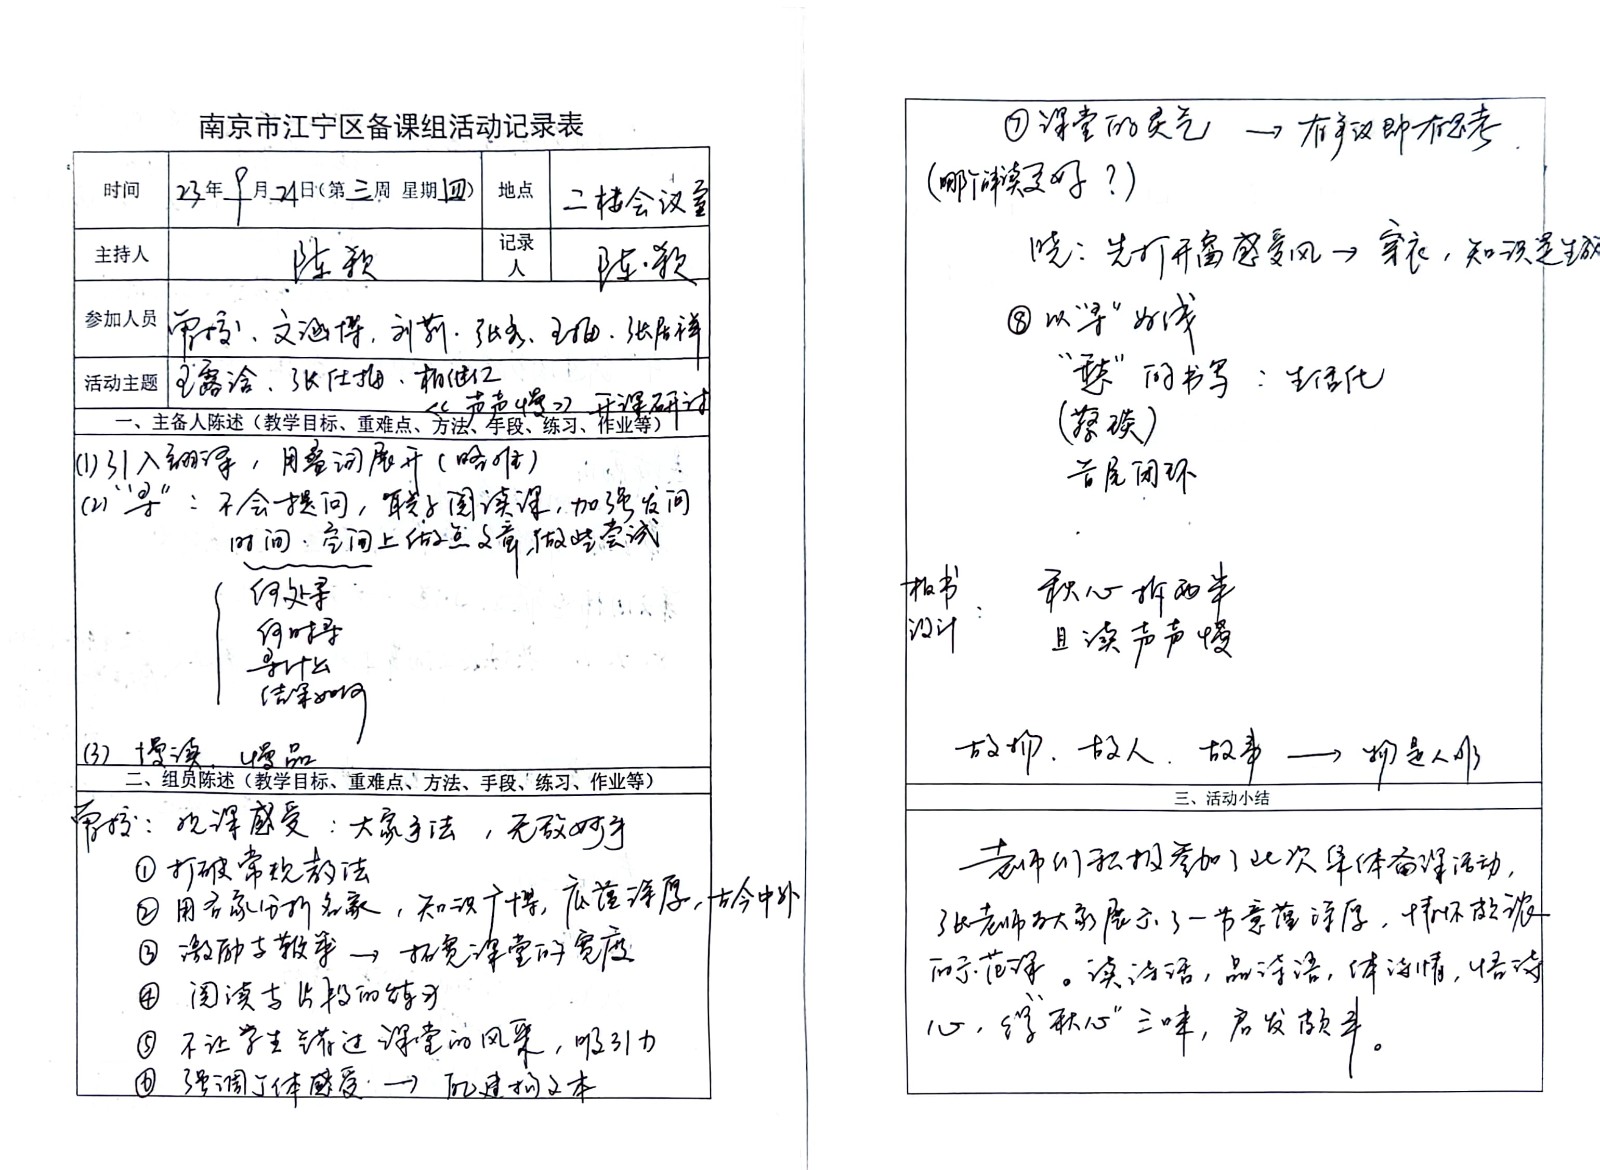 南京市江宁区备课组活动记录表
时间 23年9月21日(第三周 星期四) 地点 二楼会议室
主持人 陈颖 记录人 陈颖
参加人员 曹校、文涵博、刘莉、张
活动主题 张仕梅
《声声慢》开课研讨
一、主备人陈述（教学目标、重难点、方法、手段、练习、作业等）
(1)引入翻译，用叠词展开
(2)“寻”：不会提问，联系阅读课，加强发问
时间、空间上做点文章，做些尝试
何处寻
何时寻
寻什么
结果如何
(3) 慢读、慢品
二、组员陈述（教学目标、重难点、方法、手段、练习、作业等）
曹校：观课感受：大家手法，无敌妙手
① 打破常规教法
② 用名家分析名家，知识广博，底蕴深厚，古今中外
③ 激励与鞭策 → 拓宽课堂的宽度
④ 阅读与片段的练习
⑤ 不让学生错过课堂的风采，吸引力
⑥ 强调个体感受 → 建构文本
⑦ 课堂的灵气 → 有争议即有思考
(哪个解读更好？)
晓：先打开窗感受风 → 穿衣，知识是生成
⑧ 以“寻”为线
“愁”的书写：生活化
(蔡琰)
首尾闭环
板书设计：
秋心拆两半
且读声声慢
故物、故人、故事 → 物是人非
三、活动小结
老师们积极参加了此次集体备课活动，
张老师为大家展示了一节意蕴深厚，情怀颇浓
的示范课。读诗话，品诗语，体诗情，悟诗
心，得“秋心”三味，启发颇丰。